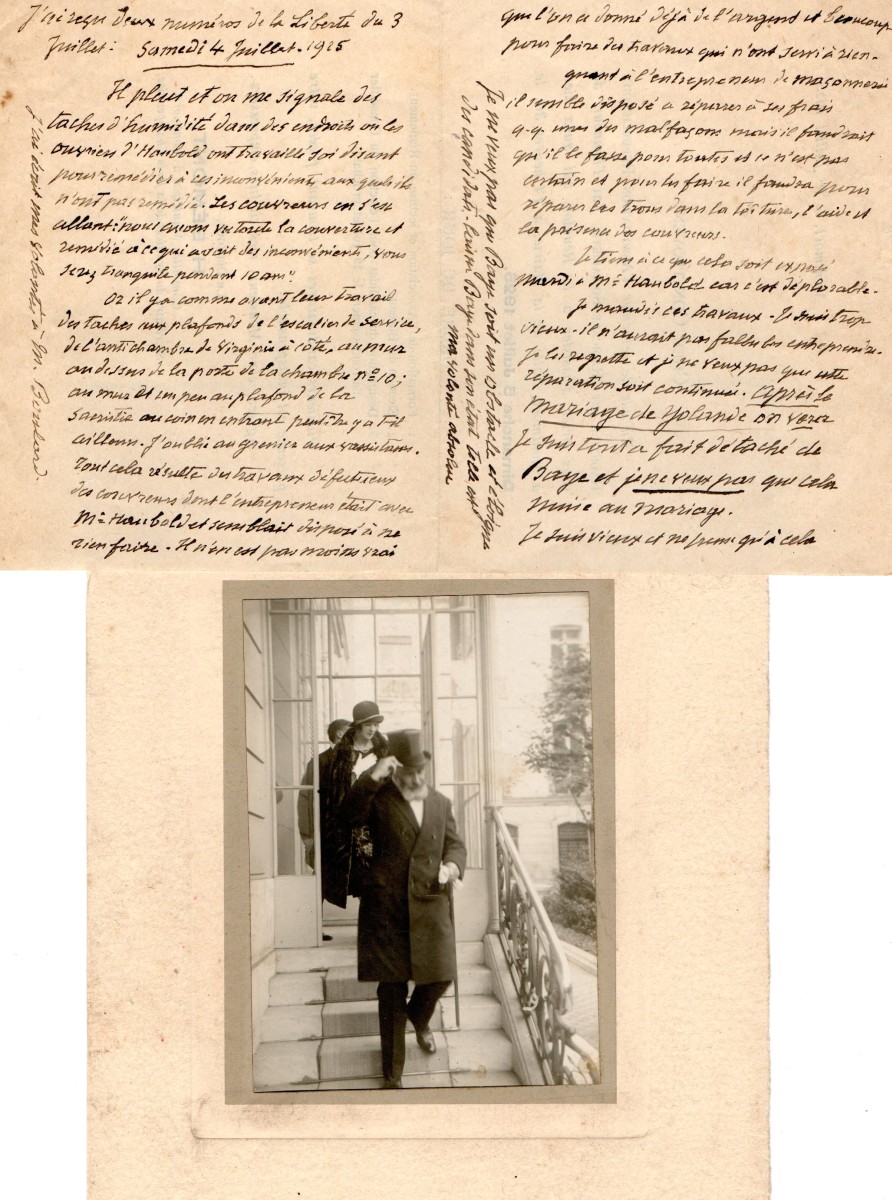 J'ai reçu deux numéros de la Liberté du 3
Juillet. Samedi 4 Juillet. 1925
Il pleut et on me signale des
taches d'humidité dans des endroits où les
ouvriers d'Haubold ont travaillé soi disant
pour remédier à ces inconvénients aux quels ils
n'ont pas remédié. Les couvreurs en s'en
allant: "nous avons vu toute la couverture et
remédié à ce qui avait des inconvénients, vous
serez tranquile pendant 10 ans".
Or il y a comme avant leur travail
des taches aux plafonds de l'escalier de service,
de l'antichambre de Virginie à côté, au mur
au dessus de la porte de la chambre nº 10;
au mur et un peu au plafond de la
Sacristie au coin en entrant peut être y a t-il
ailleurs. J'oublie au grenier aux
Tout cela résulte des travaux défectueux
des couvreurs dont l'entrepreneur était avec
Mr Haubold et semblait disposé à ne
rien faire. Il n'en est pas moins vrai
J'ai écrit mes volontés à M.
que l'on a donné déjà de l'argent et beaucoup
pour faire des travaux qui n'ont servi à rien.
quant à l'entrepreneur de maçonnerie
il semble disposé à réparer à ses frais
q.q. unes des malfaçons mais il faudrait
qu'il le fasse pour toutes et ce n'est pas
certain et pour les faire il faudra pour
réparer les trous dans la toiture, l'aide et
la présence des couvreurs.
Je tiens à ce que cela soit exposé
mardi à Mr Haubold car c'est déplorable.
Je maudis ces travaux. Je suis trop
vieux. il n'aurait pas fallu les entreprendre.
Je les regrette et je ne veux pas que cette
réparation soit continuée. Après le
mariage de Yolande on verra
Je suis tout a fait détaché de
Baye et je ne veux pas que cela
nuise au mariage.
Je suis vieux et ne pense qu'à cela
Je ne veux pas que Baye soit un obstacle et éloigne
des candidats. laisser Baye dans son état telle est
ma volonté absolue